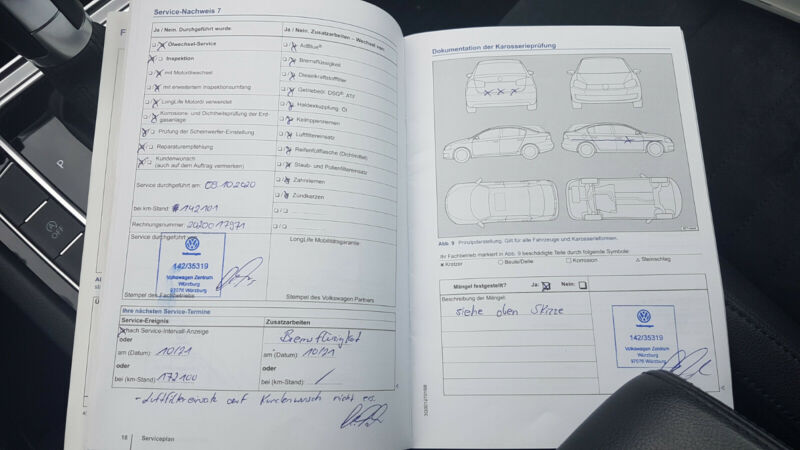 Service-Nachweis 7
Ja / Nein. Durchgeführt wurde:
Ölwechsel-Service
Inspektion
mit Motorölwechsel
mit erweitertem Inspektionsumfang
LongLife Motoröl verwendet
Korrosions- und Dichtheitsprüfung der Erdgasanlage
Prüfung der Scheinwerfer-Einstellung
Reparaturempfehlung
Kundenwunsch
(auch auf dem Auftrag vermerken)
Service durchgeführt am: 09.10.2020
bei km-Stand: 142101
Rechnungsnummer: 2020017971
Service durchgeführt von:
142/35319
Volkswagen Zentrum
Würzburg
97076 Würzburg
Stempel des Fachbetriebs
Ja / Nein. Zusatzarbeiten – Wechsel von:
AdBlue®
Bremsflüssigkeit
Dieselkraftstofffilter
Getriebeöl: DSG®, ATF
Haldexkupplung: Öl
Keilrippenriemen
Luftfiltereinsatz
Reifenfüllflasche (Dichtmittel)
Staub- und Pollenfiltereinsatz
Zahnriemen
Zündkerzen
LongLife Mobilitätsgarantie
Stempel des Volkswagen Partners
Ihre nächsten Service-Termine
Service-Ereignis
nach Service-Intervall-Anzeige
oder
am (Datum): 10/21
oder
bei (km-Stand): 172100
Zusatzarbeiten
Bremsflüssigkeit
am (Datum): 10/21
oder
bei (km-Stand): /
- Luftfiltereinsatz auf Kundenwunsch nicht ers.
18 Serviceplan
Dokumentation der Karosserieprüfung
Abb. 9 Prinzipdarstellung. Gilt für alle Fahrzeuge und Karosserieformen.
Ihr Fachbetrieb markiert in Abb. 9 beschädigte Teile durch folgende Symbole:
× Kratzer ○ Beule/Delle □ Korrosion △ Steinschlag
Mängel festgestellt? Ja: Nein:
Beschreibung der Mängel:
siehe oben Skizze
142/35319
Volkswagen Zentrum
Würzburg
97076 Würzburg
P
OFF